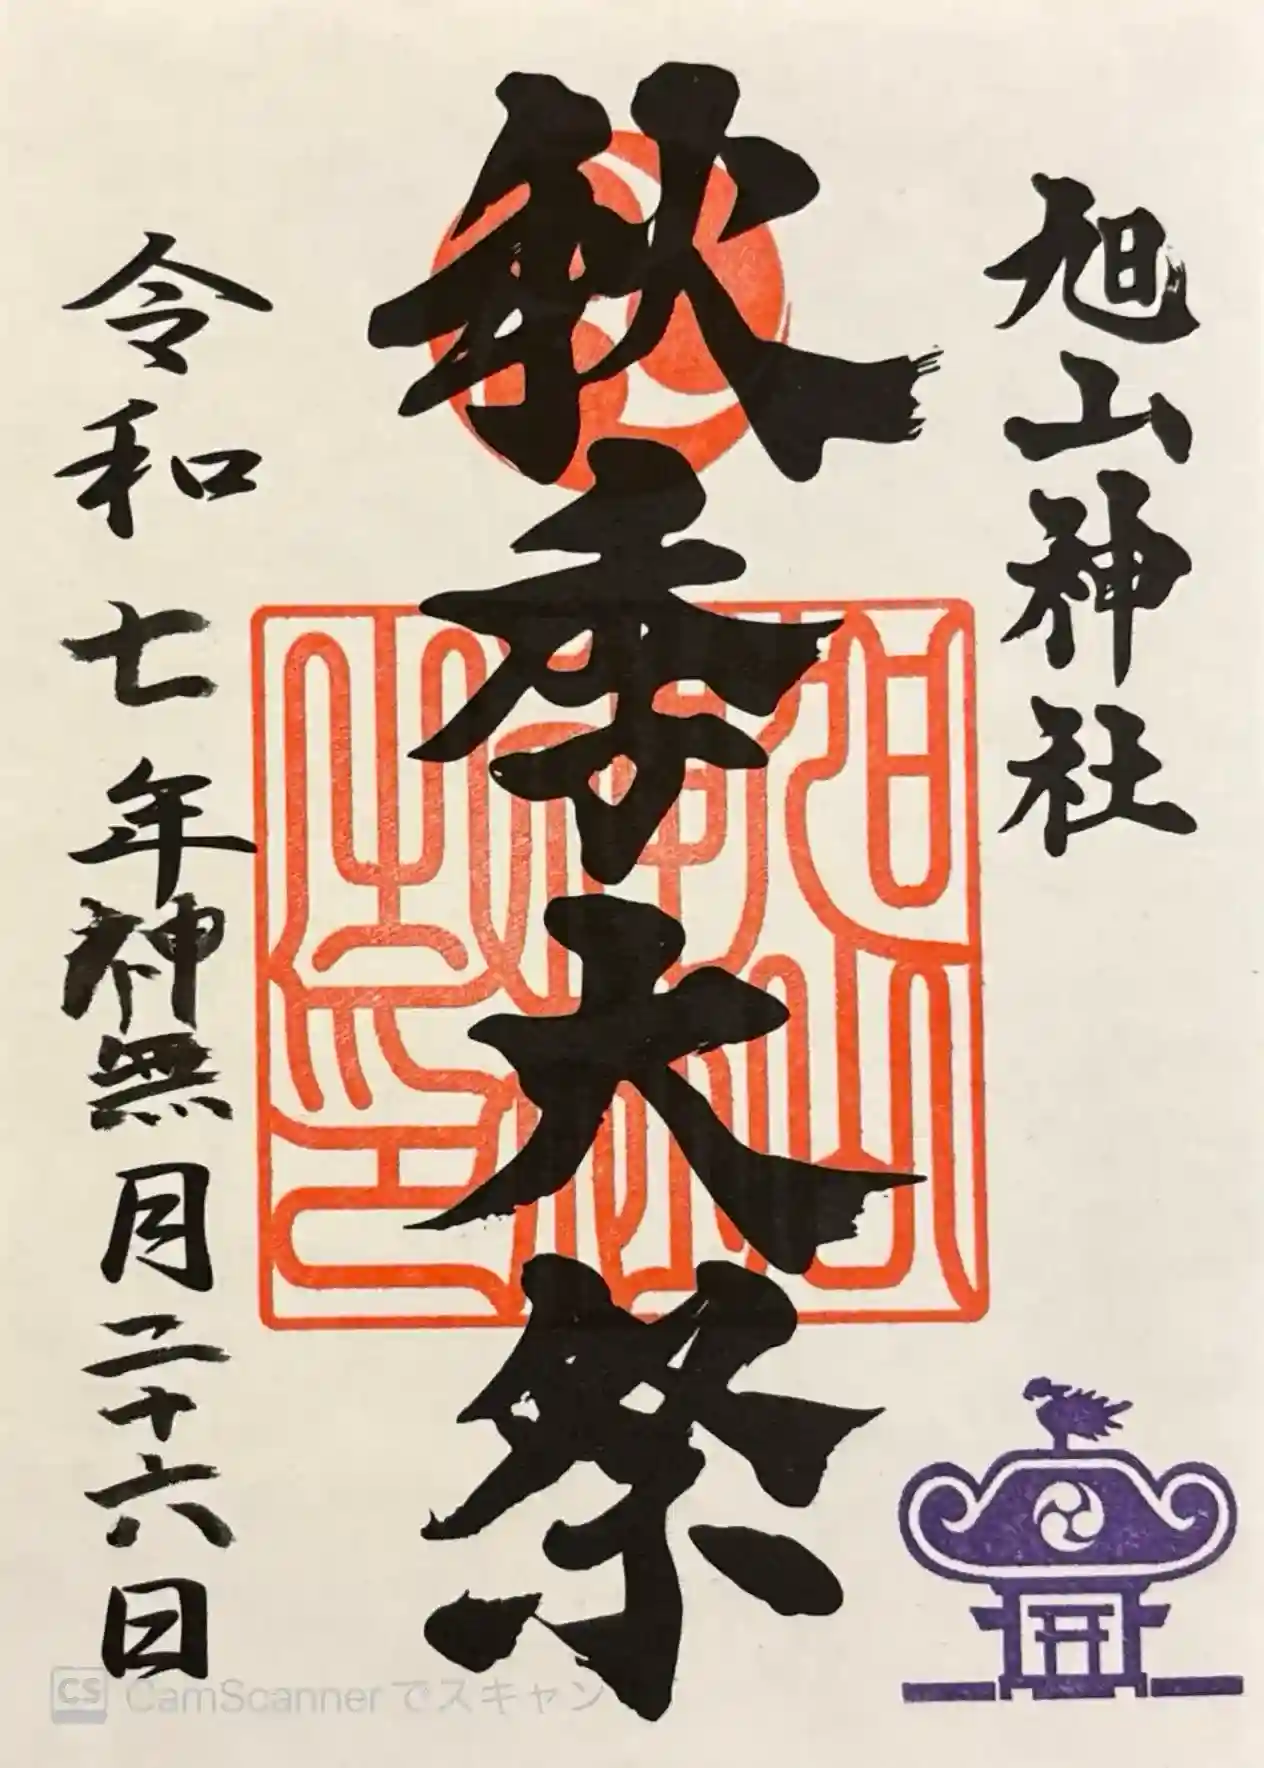 旭山神社
秋季大祭
旭山神社之印
令和七年神無月二十六日
CS CamScannerでスキャン